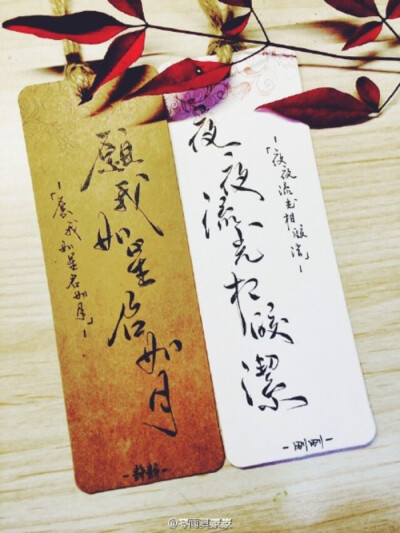 願我如星君如月
-「愿我如星君如月」-
夜夜流光相皎潔
-「夜夜流光相皎洁」-